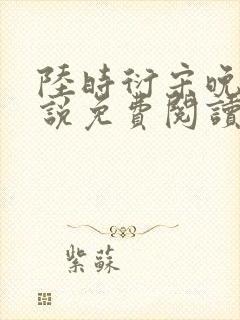 陸時衍宋晚
說免費閱讀
紫蘇